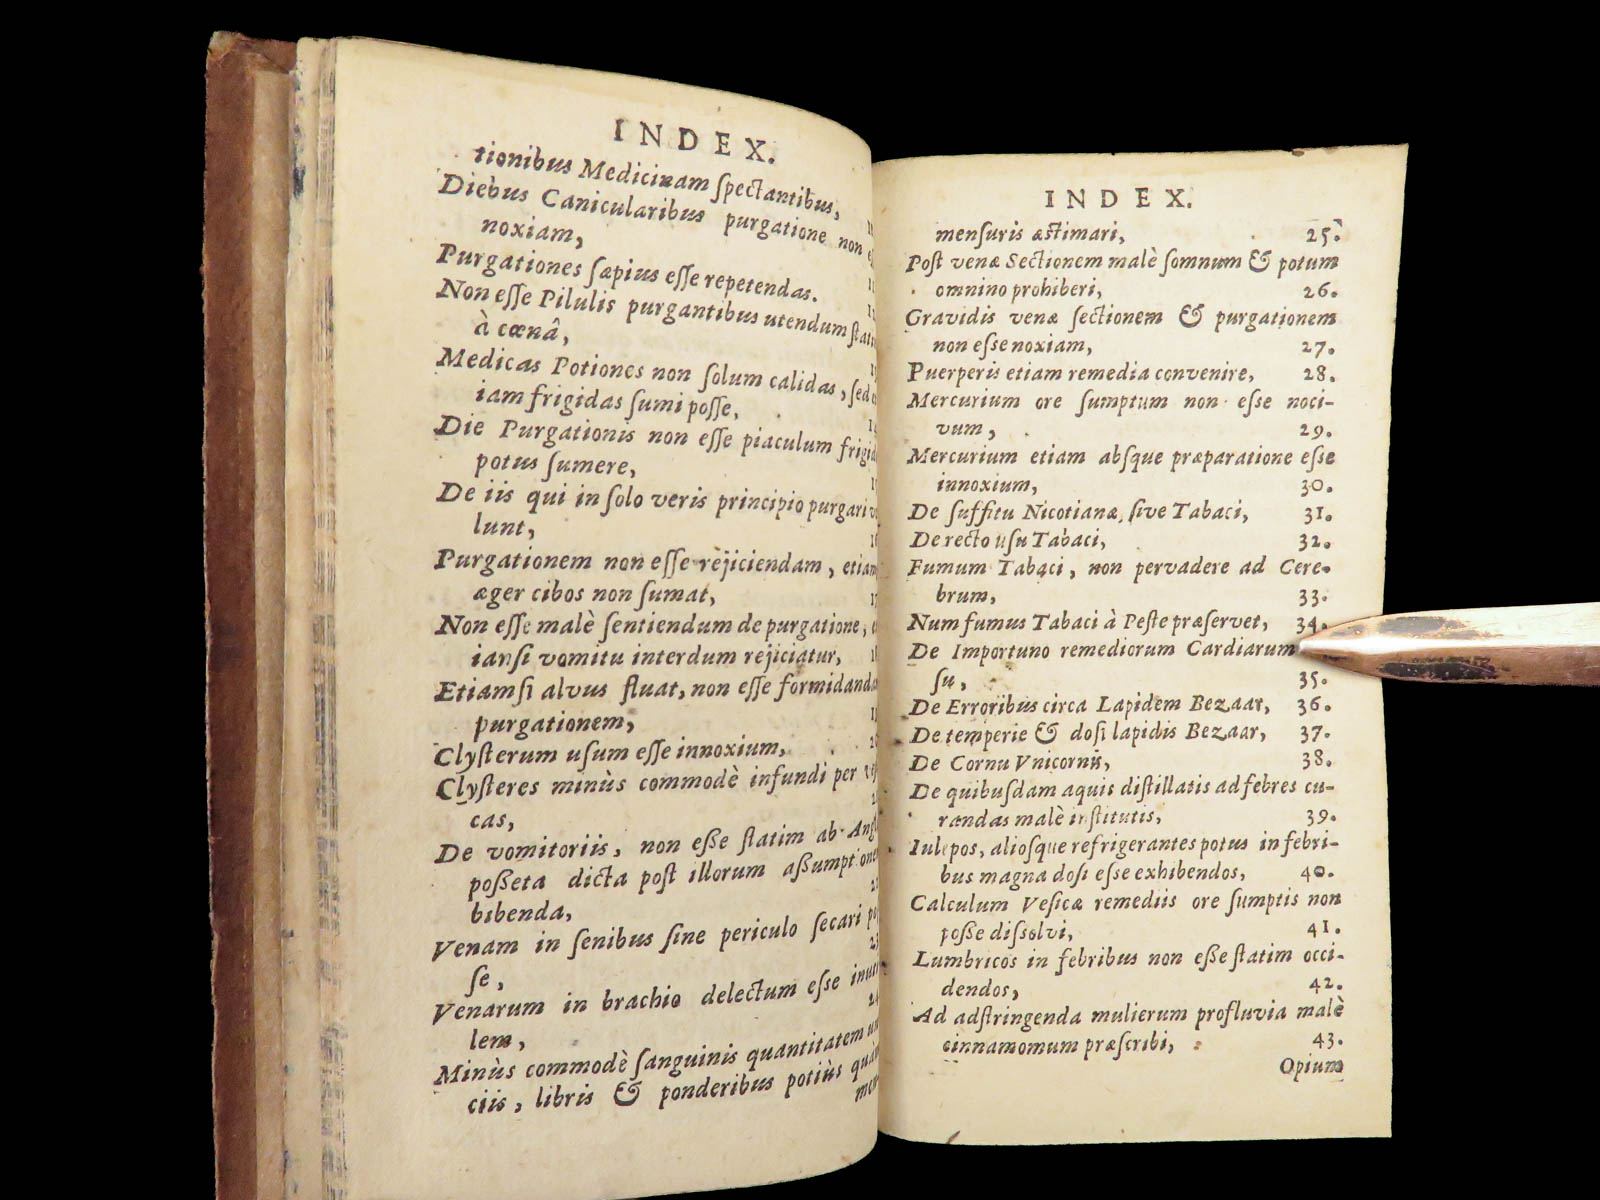 INDEX.
tionibus Medicinam ſpectantibus,
Diebus Canicularibus purgatione non
noxiam,
Purgationes ſæpius eſſe repetendas.
Non eſſe Pilulis purgantibus utendum
à cœnâ,
Medicas Potiones non ſolum calidas, ſed
iam frigidas ſumi poſſe,
Die Purgationis non eſſe piaculum
potus ſumere,
De iis qui in ſolo veris principio purgari
lunt,
Purgationem non eſſe rejiciendam, etiam
æger cibos non ſumat,
Non eſſe malè ſentiendum de purgatione,
iamſi vomitu interdum rejiciatur,
Etiamſi alvus fluat, non eſſe formidanda
purgationem,
Clyſterum uſum eſſe innoxium,
Clyſteres minùs commodè infundi per
cas,
De vomitoriis, non eſſe ſtatim ab
poſſeta dicta poſt illorum aſſumptione
bibenda,
Venam in ſenibus ſine periculo ſecari
ſe,
Venarum in brachio delectum eſſe
lem,
Minùs commodè ſanguinis quantitatem
ciis, libris & ponderibus potiùs
INDEX.
menſuris æſtimari, 25.
Poſt venæ Sectionem malè ſomnum & potum
omnino prohiberi, 26.
Gravidis venæ ſectionem & purgationem
non eſſe noxiam, 27.
Puerperis etiam remedia convenire, 28.
Mercurium ore ſumptum non eſſe noci-
vum, 29.
Mercurium etiam abſque præparatione eſſe
innoxium, 30.
De ſuffitu Nicotianæ, ſive Tabaci, 31.
De recto uſu Tabaci, 32.
Fumum Tabaci, non pervadere ad Cere-
brum, 33.
Num fumus Tabaci à Peſte præſervet, 34.
De Importuno remediorum Cardiarum
ſu, 35.
De Erroribus circa Lapidem Bezaar, 36.
De temperie & doſi lapidis Bezaar, 37.
De Cornu Vnicornis, 38.
De quibuſdam aquis diſtillatis ad febres cu-
randas malè inſtitutis, 39.
Iulepos, alioſque refrigerantes potus in febri-
bus magna doſi eſſe exhibendos, 40.
Calculum Veſicæ remediis ore ſumptis non
poſſe diſſolvi, 41.
Lumbricos in febribus non eſſe ſtatim occi-
dendos, 42.
Ad adſtringenda mulierum profluvia malè
cinnamomum præſcribi, 43.
Opium